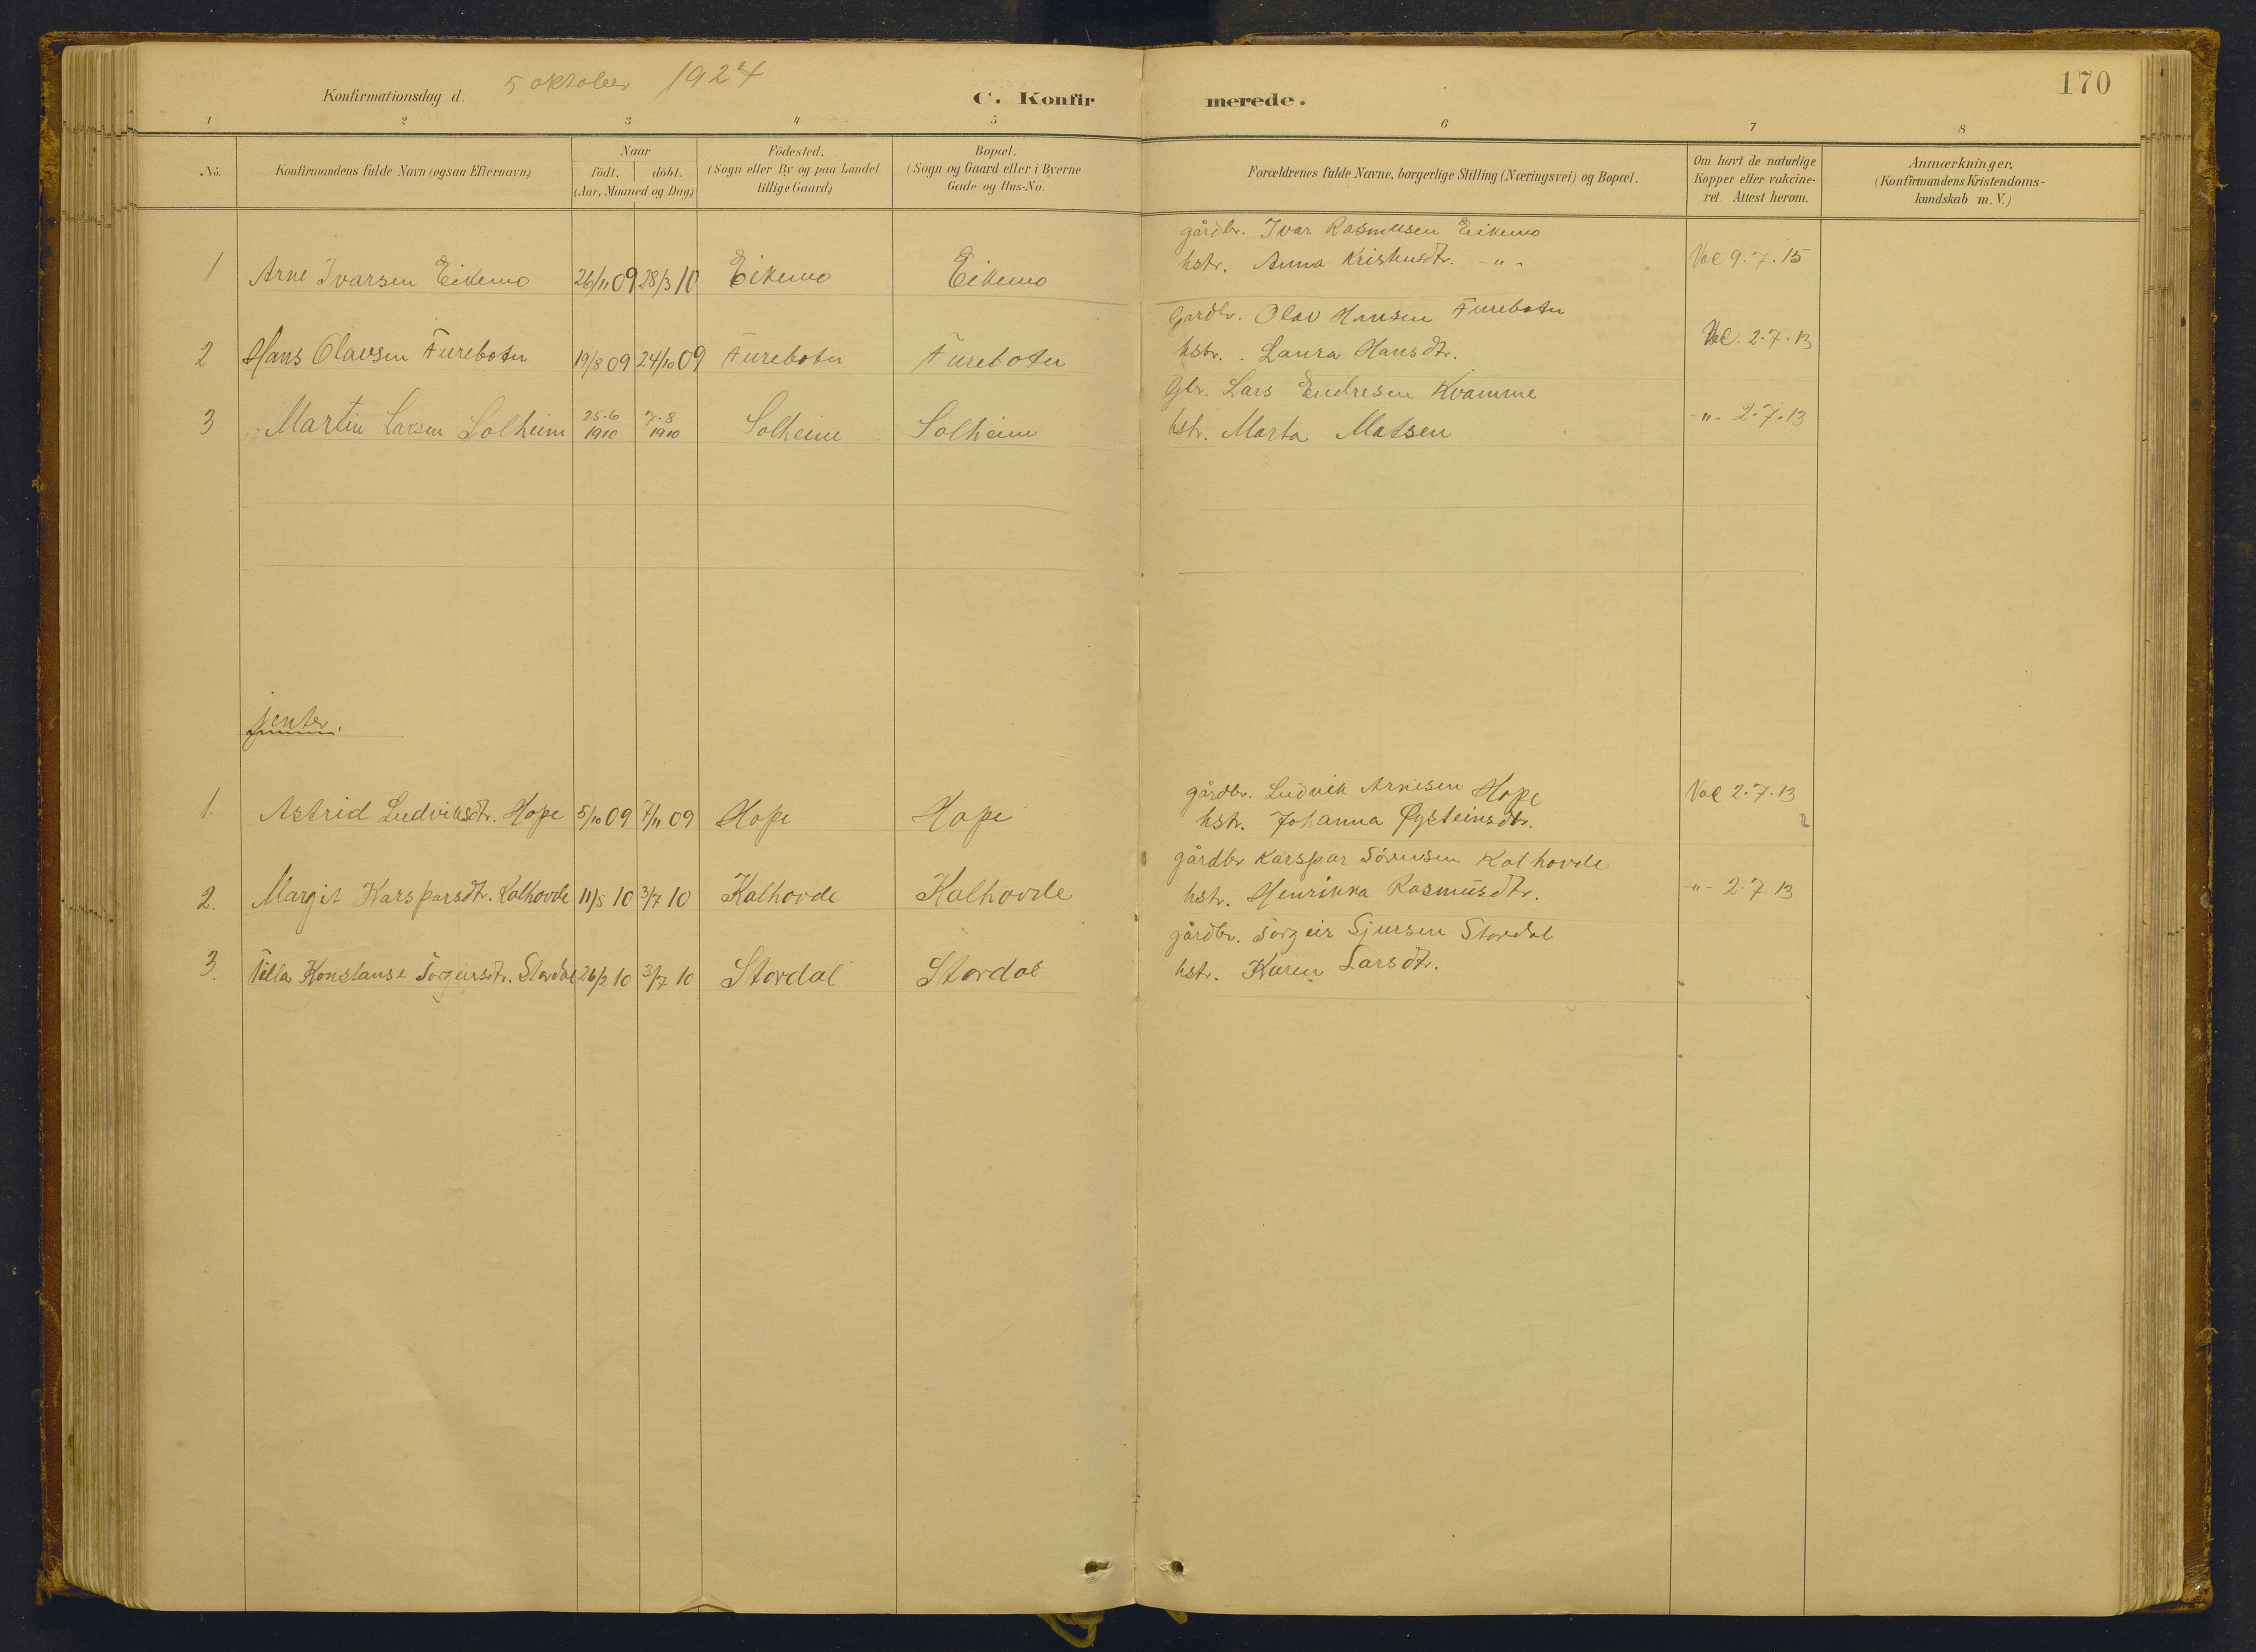 170
Konfirmationsdag d. 5 oktober 1924
C. Konfirmerede.
1 2 3 4 5 6 7 8
No.
Konfirmandens fulde Navn (ogsaa Efternavn)
Naar
födt. döbt.
(Aar, Maaned og Dag)
Födested.
(Sogn eller By og paa Landet
tillige Gaard)
Bopæl.
(Sogn og Gaard eller i Byerne
Gade og Hus-No.
Forældrenes fulde Navne, borgerlige Stilling (Næringsvei) og Bopæl.
Om havt de naturlige
Kopper eller vakcine-
ret. Attest herom.
Anmærkninger,
(Konfirmandens Kristendoms-
kundskab m. V.)
gårdbr. Ivar Rasmusen Eikemo
1 Arne Ivarsen Eikemo 26/11 09 28/3 10 Eikemo Eikemo hstr. Anna -"- Vac 9.7.15
Gardbr. Olav Hansen Furebotn
2 Hans Olavsen Furebotn 19/8 09 24/10 09 Furebotn Furebotn hstr. Laura Hansdtr. Vac. 2.7.13
Gbr. Lars Endresen Kvamme
3 Martin Larsen Solheim 25-6 1910 7-8 1910 Solheim Solheim hstr. Marta Matsen -"- 2.7.13
jenter.
gårdbr. Ludvik Arnesen Hope
1. Astrid Ludviksdtr. Hope 5/10 09 7/11 09 Hope Hope hstr. Johanna Øysteinsdtr. Vac 2.7.13
gårdbr Karspar Sörensen Kalhovde
2. Margit Karsparsdtr. Kalhovde 11/5 10 3/7 10 Kalhovde Kalhovde hstr. Henrikka Rasmusdtr. -"- 2.7 13
gårdbr. Torgeir Sjursen Stordal
3. Konstanse Torgeirsdtr. Stordal 26/2 10 3/7 10 Stordal Stordal hstr. Karen Larsdtr.